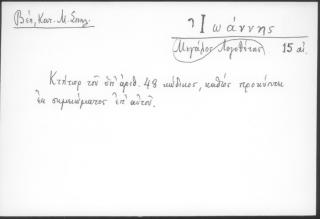 Βέη, Κατ. Μ. Σπηλ.
Ἰωάννης
Μεγάλος Λογοθέτης 15 αἰ.
Κτήτωρ τοῦ ὑπ' ἀριθ. 48 κώδικος, καθὼς προκύπτει
ἐκ σημειώματος ἐπ' αὐτοῦ.